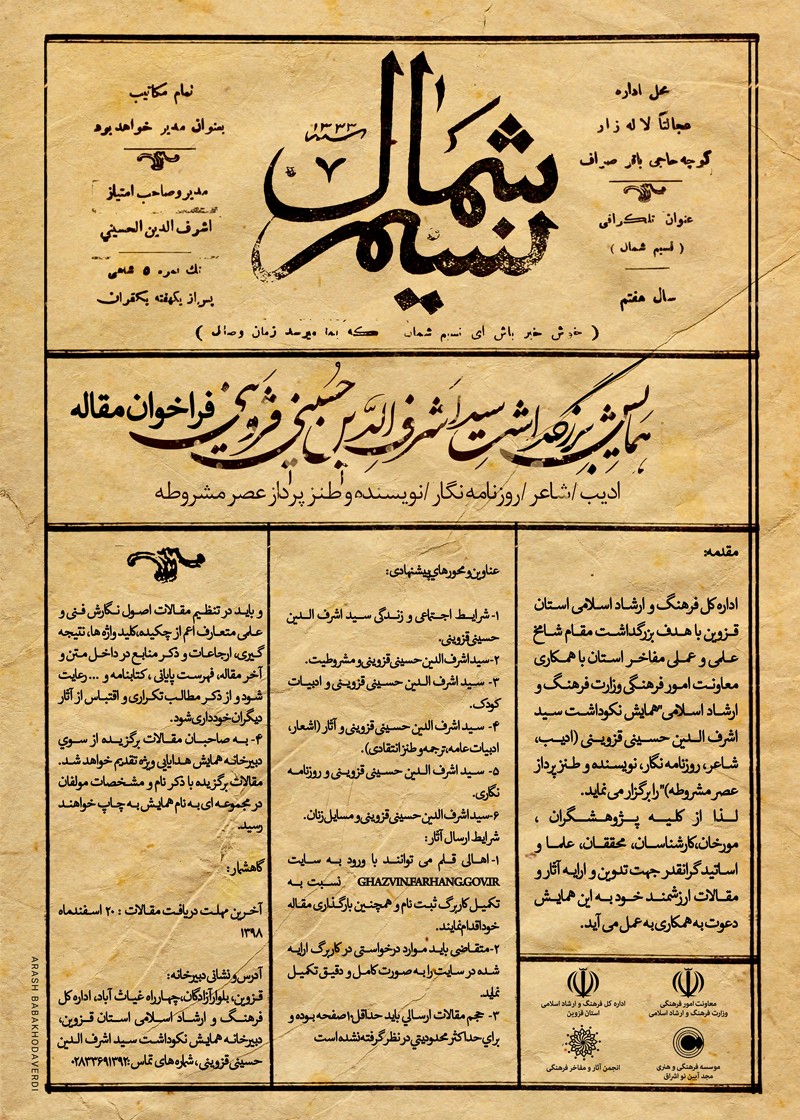 محل اداره
عجالتاً لاله زار
کوچه حاجی باقر صراف
عنوان تلگرافی
( نسیم شمال )
سال هفتم
نسیم شمال
سنه ۱۳۳۳
۷
تمام مکاتیب
بعنوان مدیر خواهد بود
مدیر و صاحب امتیاز
اشرف الدین الحسینی
تك نمره ۵ شاهی
پس از یکهفته یکقران
( خوش خبر باش ای نسیم شمال که بما میرسد زمان وصال )
همایش بزرگداشت سید اشرف الدین حسینی قزوینی
فراخوان مقاله
ادیب /شاعر /روزنامه نگار /نویسنده و طنز پرداز عصر مشروطه
مقدمه:
اداره کل فرهنگ و ارشاد اسلامی استان
قزوین با هدف بزرگداشت مقام شامخ
علمی و عملی مفاخر استان با همکاری
معاونت امور فرهنگی وزارت فرهنگ و
ارشاد اسلامی"همایش نکوداشت سید
اشرف الدین حسینی قزوینی (ادیب،
شاعر، روزنامه نگار، نویسنده و طنز پرداز
عصر مشروطه)" را برگزار می نماید.
لذا از کلیه پژوهشگران ،
مورخان،کارشناسان، محققان، علما و
اساتید گرانقدر جهت تدوین و ارایه آثار و
مقالات ارزشمند خود به این همایش
دعوت به همکاری به عمل می آید.
معاونت امور فرهنگی
وزارت فرهنگ و ارشاد اسلامی
اداره کل فرهنگ و ارشاد اسلامی
استان قزوین
موسسه فرهنگی و هنری
مجد آیین نو اشراق
انجمن آثار و مفاخر فرهنگی
عناوین و محورهای پیشنهادی:
۱- شرایط اجتماعی و زندگی سید اشرف الدین
حسینی قزوینی.
۲-سید اشرف الدین حسینی قزوینی و مشروطیت.
۳- سید اشرف الدین حسینی قزوینی و ادبیات
کودک.
۴- سید اشرف الدین حسینی قزوینی و آثار (اشعار،
ادبیات عامه، ترجمه و طنز انتقادی).
۵- سید اشرف الدین حسینی قزوینی و روزنامه
نگاری.
۶-سید اشرف الدین حسینی قزوینی و مسایل زنان.
شرایط ارسال آثار:
۱- اهالی قلم می توانند با ورود به سایت
GHAZVIN.FARHANG.GOV.IR نسبت به
تکمیل کاربرگ ثبت نام و همچنین بارگذاری مقاله
خود اقدام نمایند.
۲-متقاضی باید موارد درخواستی در کاربرگ ارایه
شده در سایت را به صورت کامل و دقیق تکمیل
نماید.
۳- حجم مقالات ارسالی باید حداقل۱۰صفحه بوده و
برای حداکثر محدودیتی در نظر گرفته نشده است
و باید در تنظیم مقالات اصول نگارش فنی و
علمی متعارف اعم از چکیده،کلید واژه ها، نتیجه
گیری، ارجاعات و ذکر منابع در داخل متن و
آخر مقاله، فهرست پایانی ، کتابنامه و ... رعایت
شود و از ذکر مطالب تکراری و اقتباس از آثار
دیگران خودداری شود.
۴- به صاحبان مقالات برگزیده از سوی
دبیرخانه همایش هدایایی ویژه تقدیم خواهد شد.
مقالات برگزیده با ذکر نام و مشخصات مولفان
در مجموعه ای به نام همایش به چاپ خواهند
رسید.
گاهشمار:
آخرین مهلت دریافت مقالات : ۲۰ اسفندماه
۱۳۹۸
آدرس و نشانی دبیرخانه:
قزوین، بلوار آزادگان،چهارراه غیاث آباد، اداره کل
فرهنگ و ارشاد اسلامی استان قزوین،
دبیرخانه همایش نکوداشت سید اشرف الدین
حسینی قزوینی ، شماره های تماس:۰۲۸۳۳۶۹۱۳۹۲
ARASH BABAKHODAVERDI